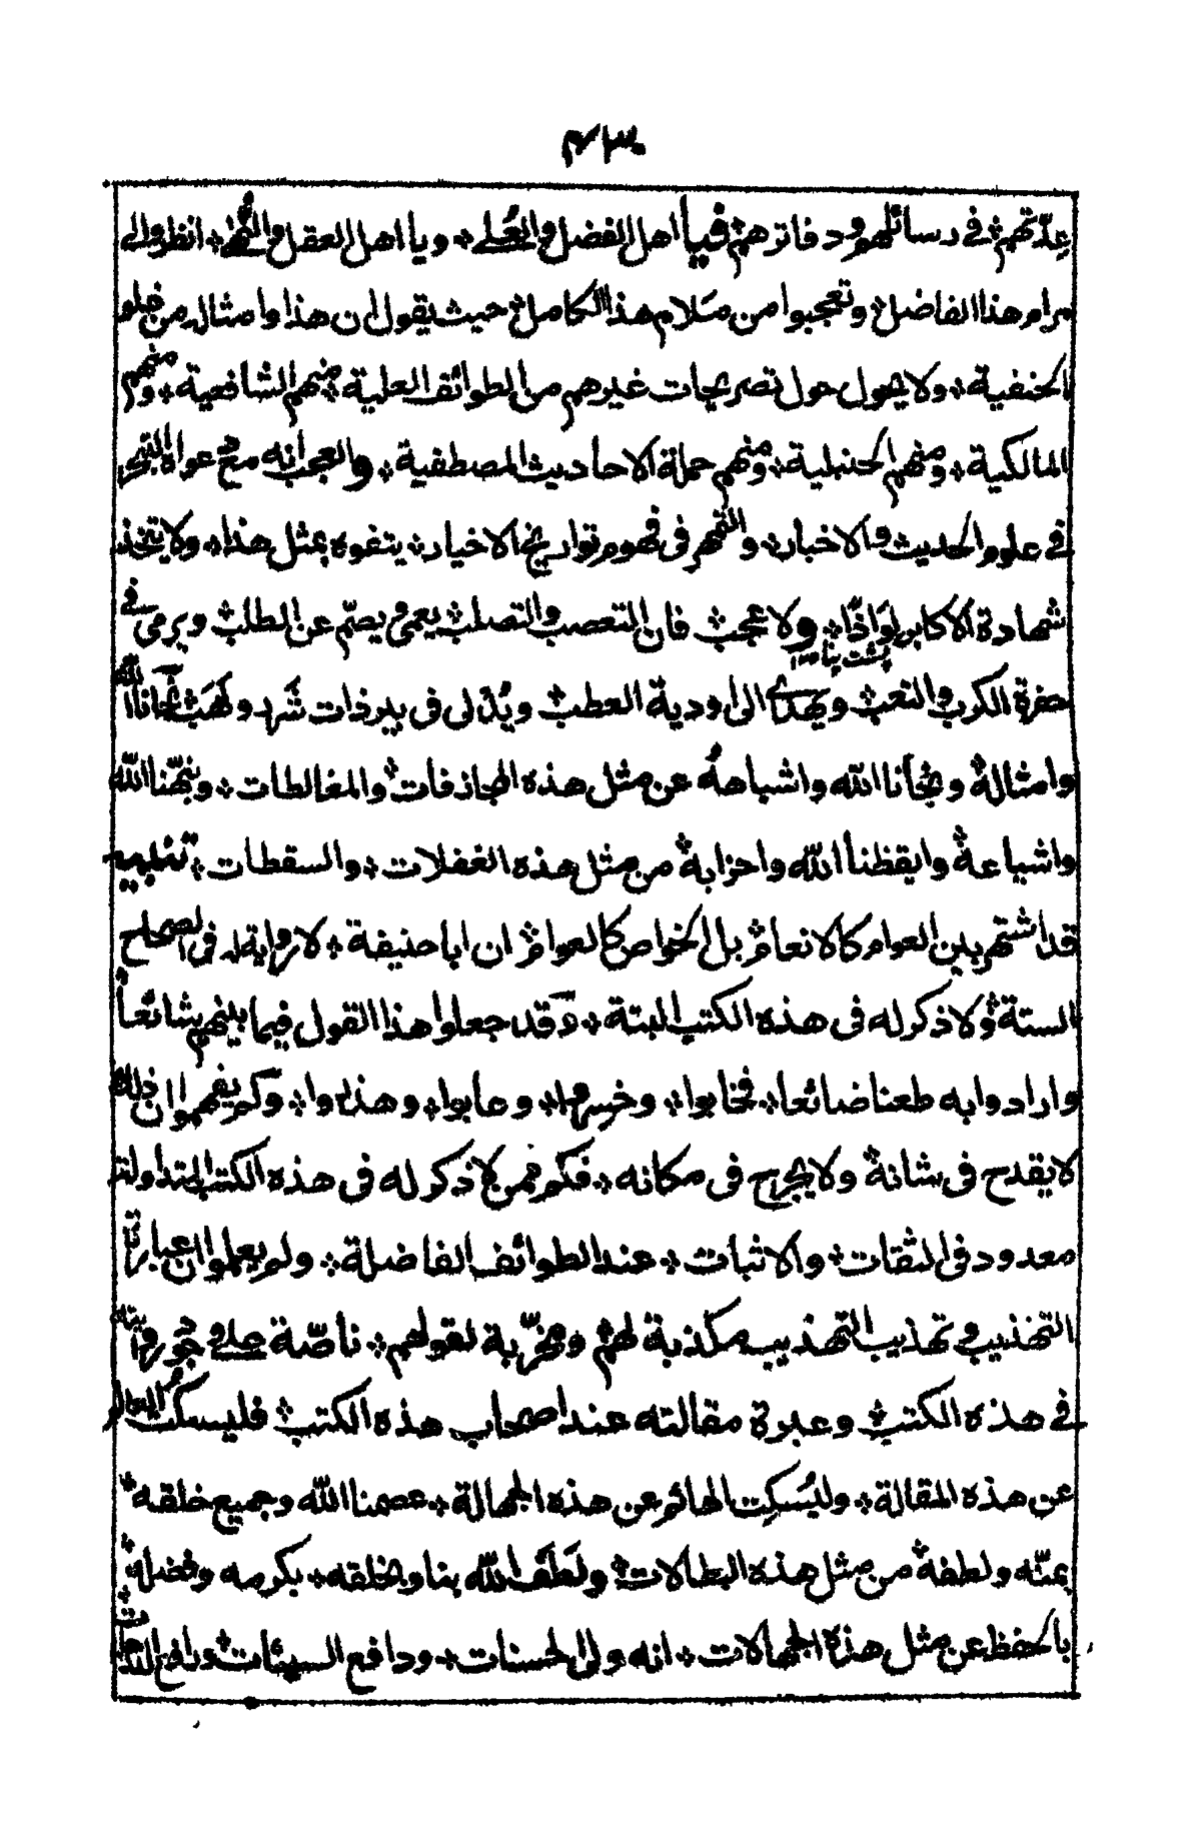 ٤٣٠
عدّتهم في رسائلهم ودفاترهم فيا اهل الفضل والعلى ويا اهل العقل والنهى انظروا الى
مرام هذا الفاضل وتعجبوا من ملام هذا الكامل حيث يقول ان هذا وامثاله من غلو
الحنفية ولا يحول حول تصريحات غيرهم من الطوائف العلية منهم الشافعية ومنهم
المالكية ومنهم الحنبلية ومنهم حملة الاحاديث المصطفية والعجب انه مع دعواه التبحر
في علوم الحديث والاخبار والتمهر في فهوم تواريخ الاخيار يتفوه بمثل هذا ولا يتخذ
شهادة الاكابر لواذا ولا عجب فان التعصب والتصلب يعمي ويصمّ عن الطلب ويرمى في
حفرة الكرب والتعب ويهدى الى اودية العطب ويدلى في بير ذات شرر ولهب نجانا الله
وامثاله ونجانا الله واشباهه عن مثل هذه المجازفات والمغالطات ونبهنا الله
واشياعه وايقظنا الله واحزابه من مثل هذه الغفلات والسقطات تنبيه
قد اشتهر بين العوام كالانعام بل الخواص كالعوام ان ابا حنيفة لا رواية له في الصحاح
الستة ولا ذكر له في هذه الكتب البتة وقد جعلوا هذا القول فيما بينهم شائعا
وارادوا به طعنا ضائعا فخابوا وخسروا وعابوا وهذوا ولم يفهموا ان ذلك
لا يقدح في شانه ولا يجرح في مكانه فكم ممن لا ذكر له في هذه الكتب المتداولة
معدود في الثقات والاثبات عند الطوائف الفاضلة ولم يعلموا ان عبارة
التهذيب وتهذيب التهذيب مكذبة لهم ومخربة لقولهم ناصّة على وجود روايته
في هذه الكتب وعبرة مقالته عند اصحاب هذه الكتب فليسكت العالم
عن هذه المقالة وليُسكِت الهائم عن هذه الجهالة عصمنا الله وجميع خلقه
بمنّه ولطفه من مثل هذه البطالات ولَطَفَ الله بنا وبخلقه بكرمه وفضله
بالحفظ عن مثل هذه الجهالات انه ولى الحسنات ودافع السيئات ورافع الدرجات